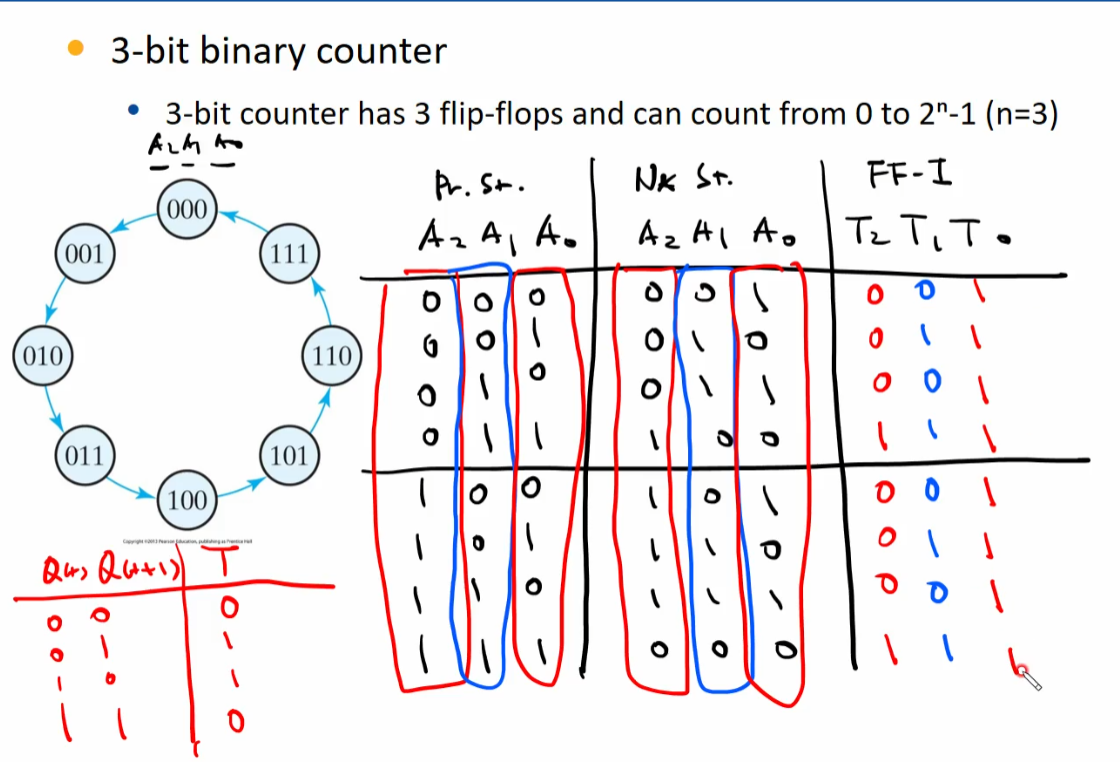 3-bit binary counter
3-bit counter has 3 flip-flops and can count from 0 to 2ⁿ-1 (n=3)
A₂ A₁ A₀
000
001
111
010
110
011
101
100
Copyright ©2013 Pearson Education, publishing as Prentice Hall
Pr. St. Nx St. FF-I
A₂ A₁ A₀ A₂ A₁ A₀ T₂ T₁ T₀
0 0 0 0 0 1 0 0 1
0 0 1 0 1 0 0 1 1
0 1 0 0 1 1 0 0 1
0 1 1 1 0 0 1 1 1
1 0 0 1 0 1 0 0 1
1 0 1 1 1 0 0 1 1
1 1 0 1 1 1 0 0 1
1 1 1 0 0 0 1 1 1
Q(t) Q(t+1) T
0 0 0
0 1 1
1 0 1
1 1 0